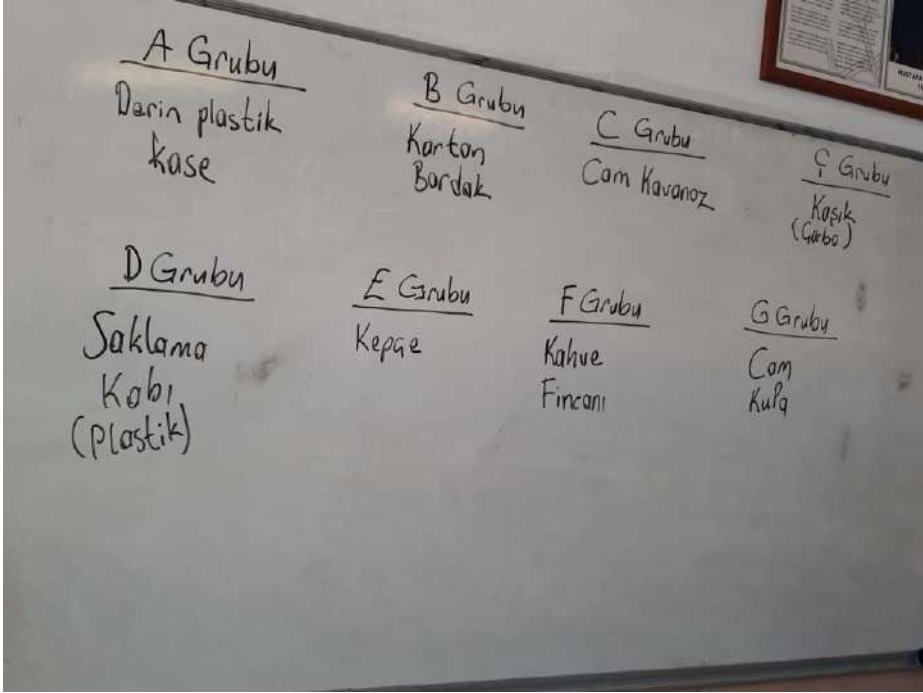 A Grubu
Derin plastik
kase
B Grubu
Karton
Bardak
C Grubu
Cam Kavanoz
Ç Grubu
Kaşık
(Çorba)
D Grubu
Saklama
Kabı
(plastik)
E Grubu
Kepçe
F Grubu
Kahve
Fincanı
G Grubu
Cam
Kupa